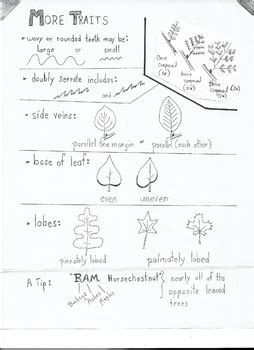 MORE TRAITS
• wavy or rounded teeth may be:
large or small
• doubly serrate includes:
and
• side veins:
parallel the margin or parallel (each other)
• base of leaf:
even uneven
• lobes:
pinnately lobed palmately lobed
A Tip: "BAM Horsechestnut" nearly all of the
opposite leaved
trees
Maples
Once
compound
(1x)
twice
compound
(2x)
thrice
compound
(3x)